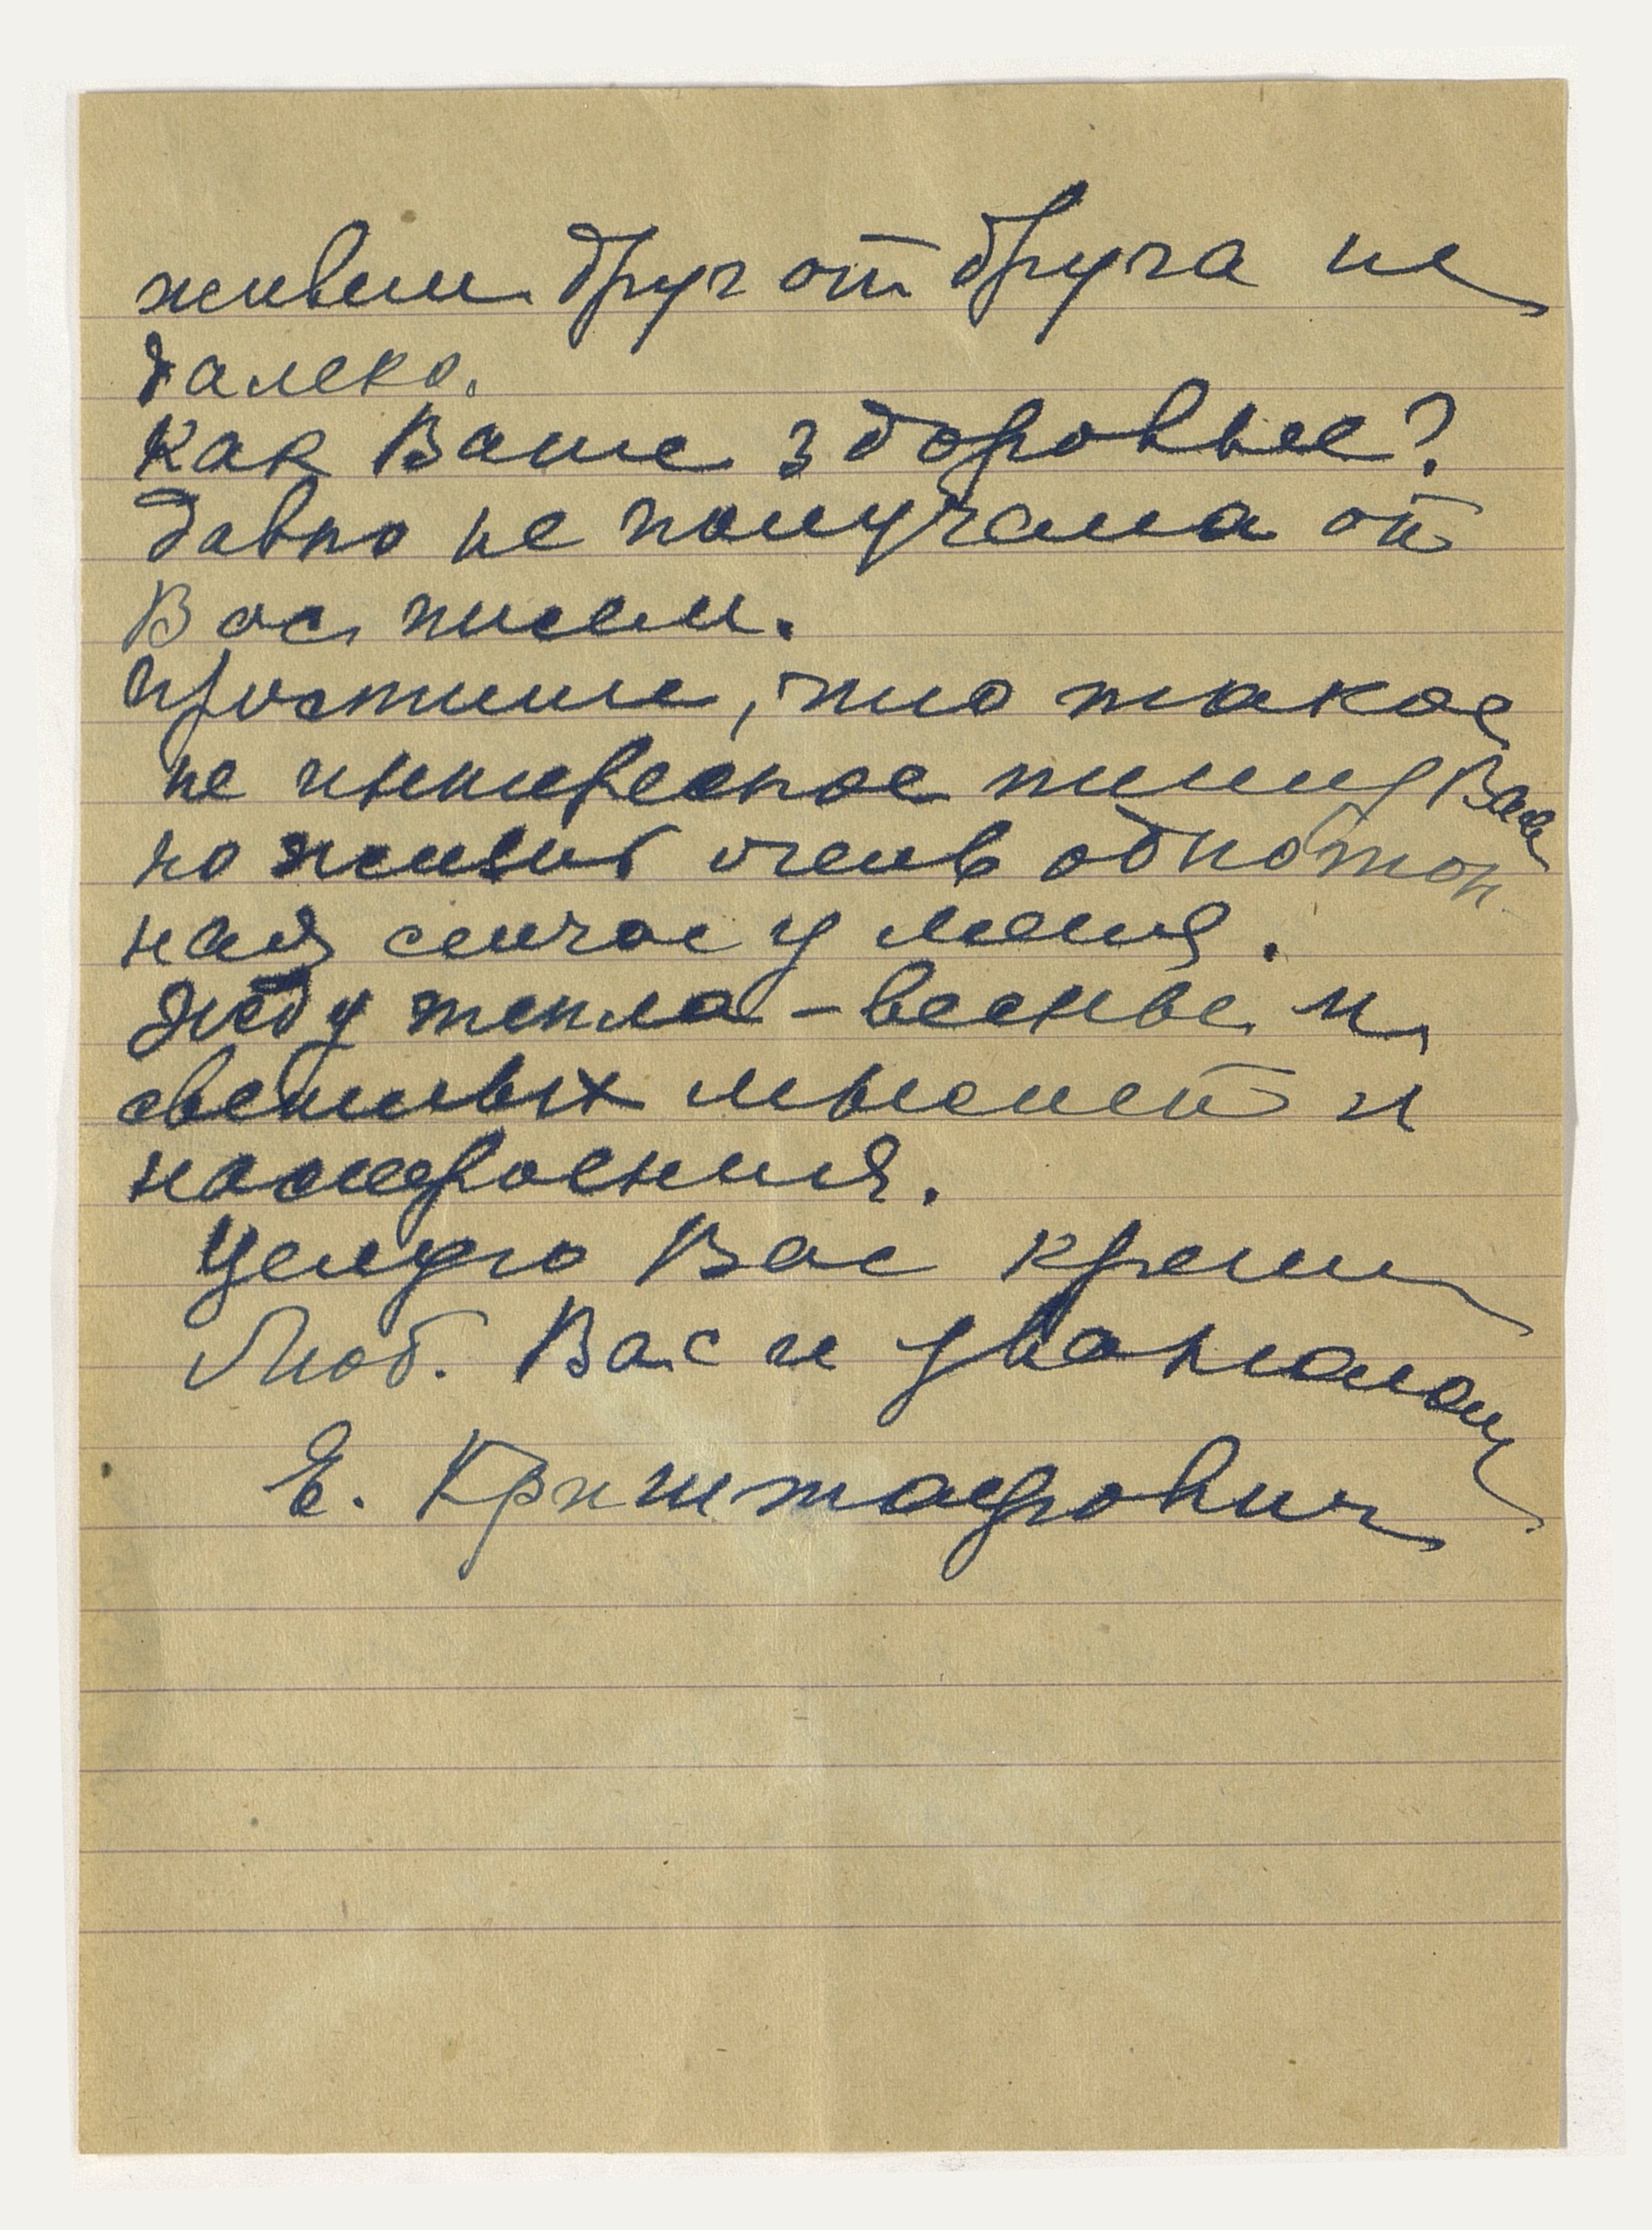 живем друг от друга не
далеко.
Как Ваше здоровье?
Давно не получала от
Вас писем.
Простите, что такое
не интересное пишу Вам
но жизнь очень однотон
ная сейчас у меня.
Жду тепла - весны и
светлых мыслей и
настроения.
Целую Вас крепко
Люб. Вас и уважающ
Е. Криштафович